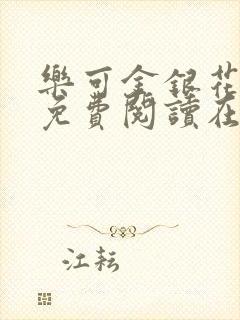 樂可金銀花
免費閱讀在
江耘